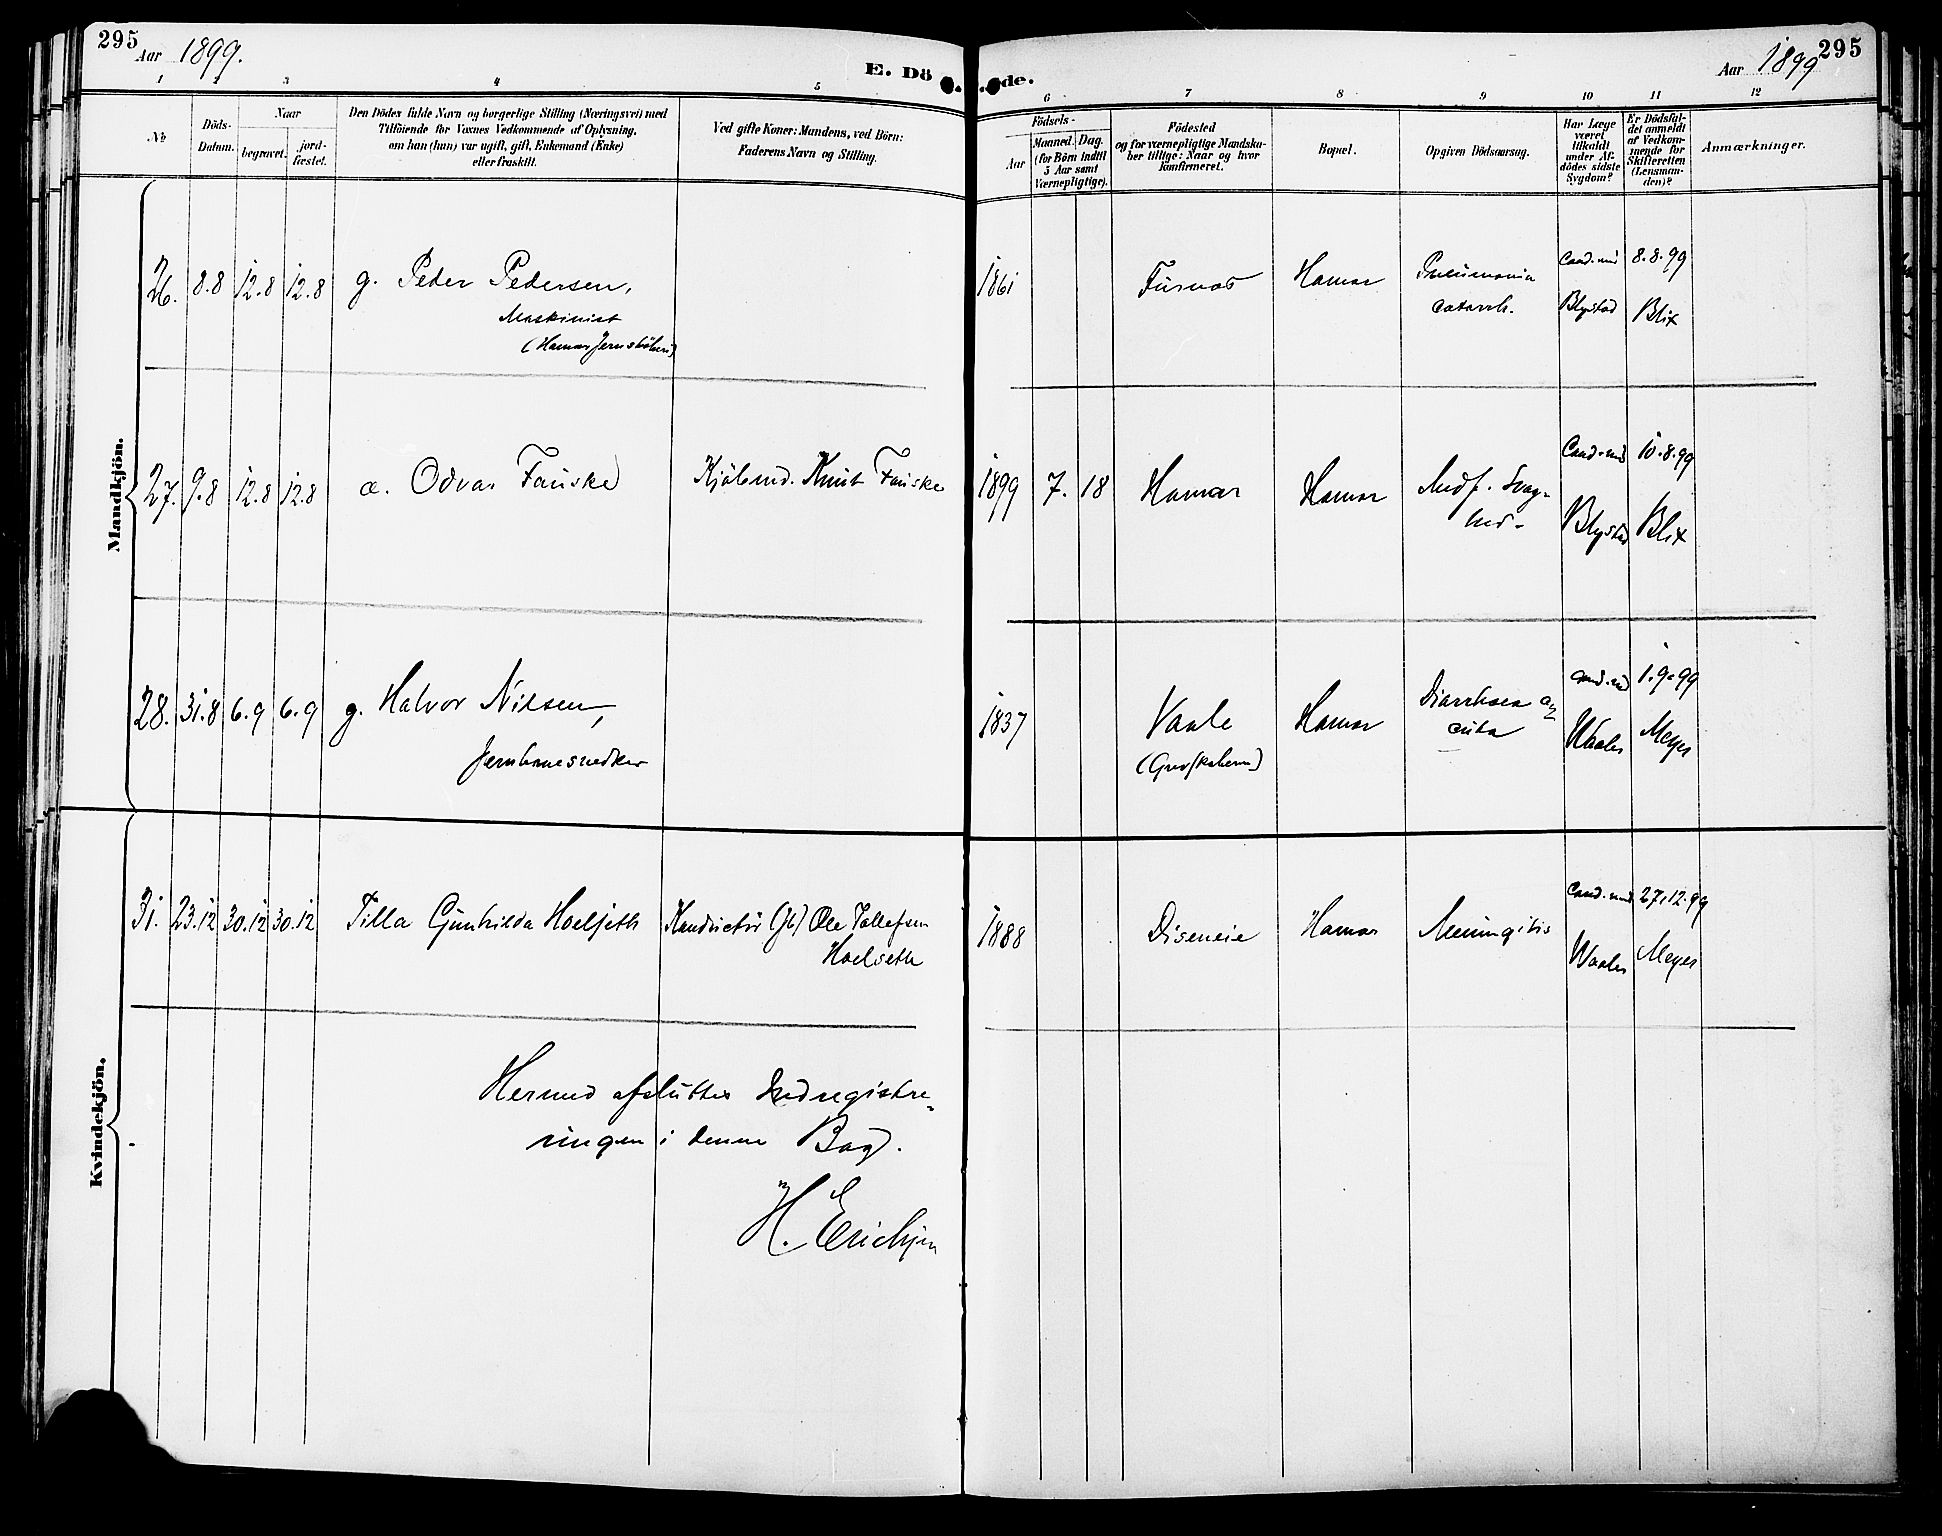 295
Aar 1899.
E. Dö
de.
Aar 1899
295
1 2 3 4 5 6 7 8 9 10 11 12
No
Döds-
Datum.
Naar
begravet.
jord-
fæstet.
Den Dödes fulde Navn og borgerlige Stilling (Næringsvei) med
Tilföiende for Voxnes Vedkommende af Oplysning,
om han (hun) var ugift, gift, Enkemand (Enke)
eller fraskilt.
Ved gifte Koner: Mandens, ved Börn:
Faderens Navn og Stilling.
Födsels-
Aar
Maaned. Dag.
(for Börn indtil
5 Aar samt
Værnepligtige).
Födested
og for værnepligtige Mandska-
ber tillige: Naar og hvor
konfirmeret.
Bopæl.
Opgiven Dödsaarsag.
Har Læge
været
tilkaldt
under Af-
dödes sidste
Sygdom?
Er Dödsfal-
det anmeldt
af Vedkom-
mende for
Skifteretten
(Lensman-
den)?
Anmærkninger.
Mandkjön.
26. 8.8 12.8 12.8 g. Peder Pedersen,
Maskinist
(Hamar Jernstöberi)
1861 Furnæs Hamar Pneumonia
catarrh.
Cand. med
Blystad
8.8.99
Blix
27. 9.8 12.8 12.8 a. Odvar Fauske Kjöbmd. Knut Fauske
1899 7. 18 Hamar Hamar Medf. Svag-
hed.
Cand. med
Blystad
10.8.99
Blix
28. 31.8 6.9 6.9 g. Halvor Nilsen,
Jernbanesnedker
1837 Vaale
(Grefskabern)
Hamar Diarrhoea a
cuta
Cand. med
Waaler
1.9.99
Meyer
Kvindekjön.
31. 23.12 30.12 30.12 Tilla Gunhilda Hoelseth Konductör (Jb) Ole Tollefsen
Hoelseth
1888 Diseneie Hamar Meningitis
Cand. med
Waaler
27.12.99
Meyer
Hermed afsluttes Indregistre-
ringen i denne Bog.
H. Erichsen